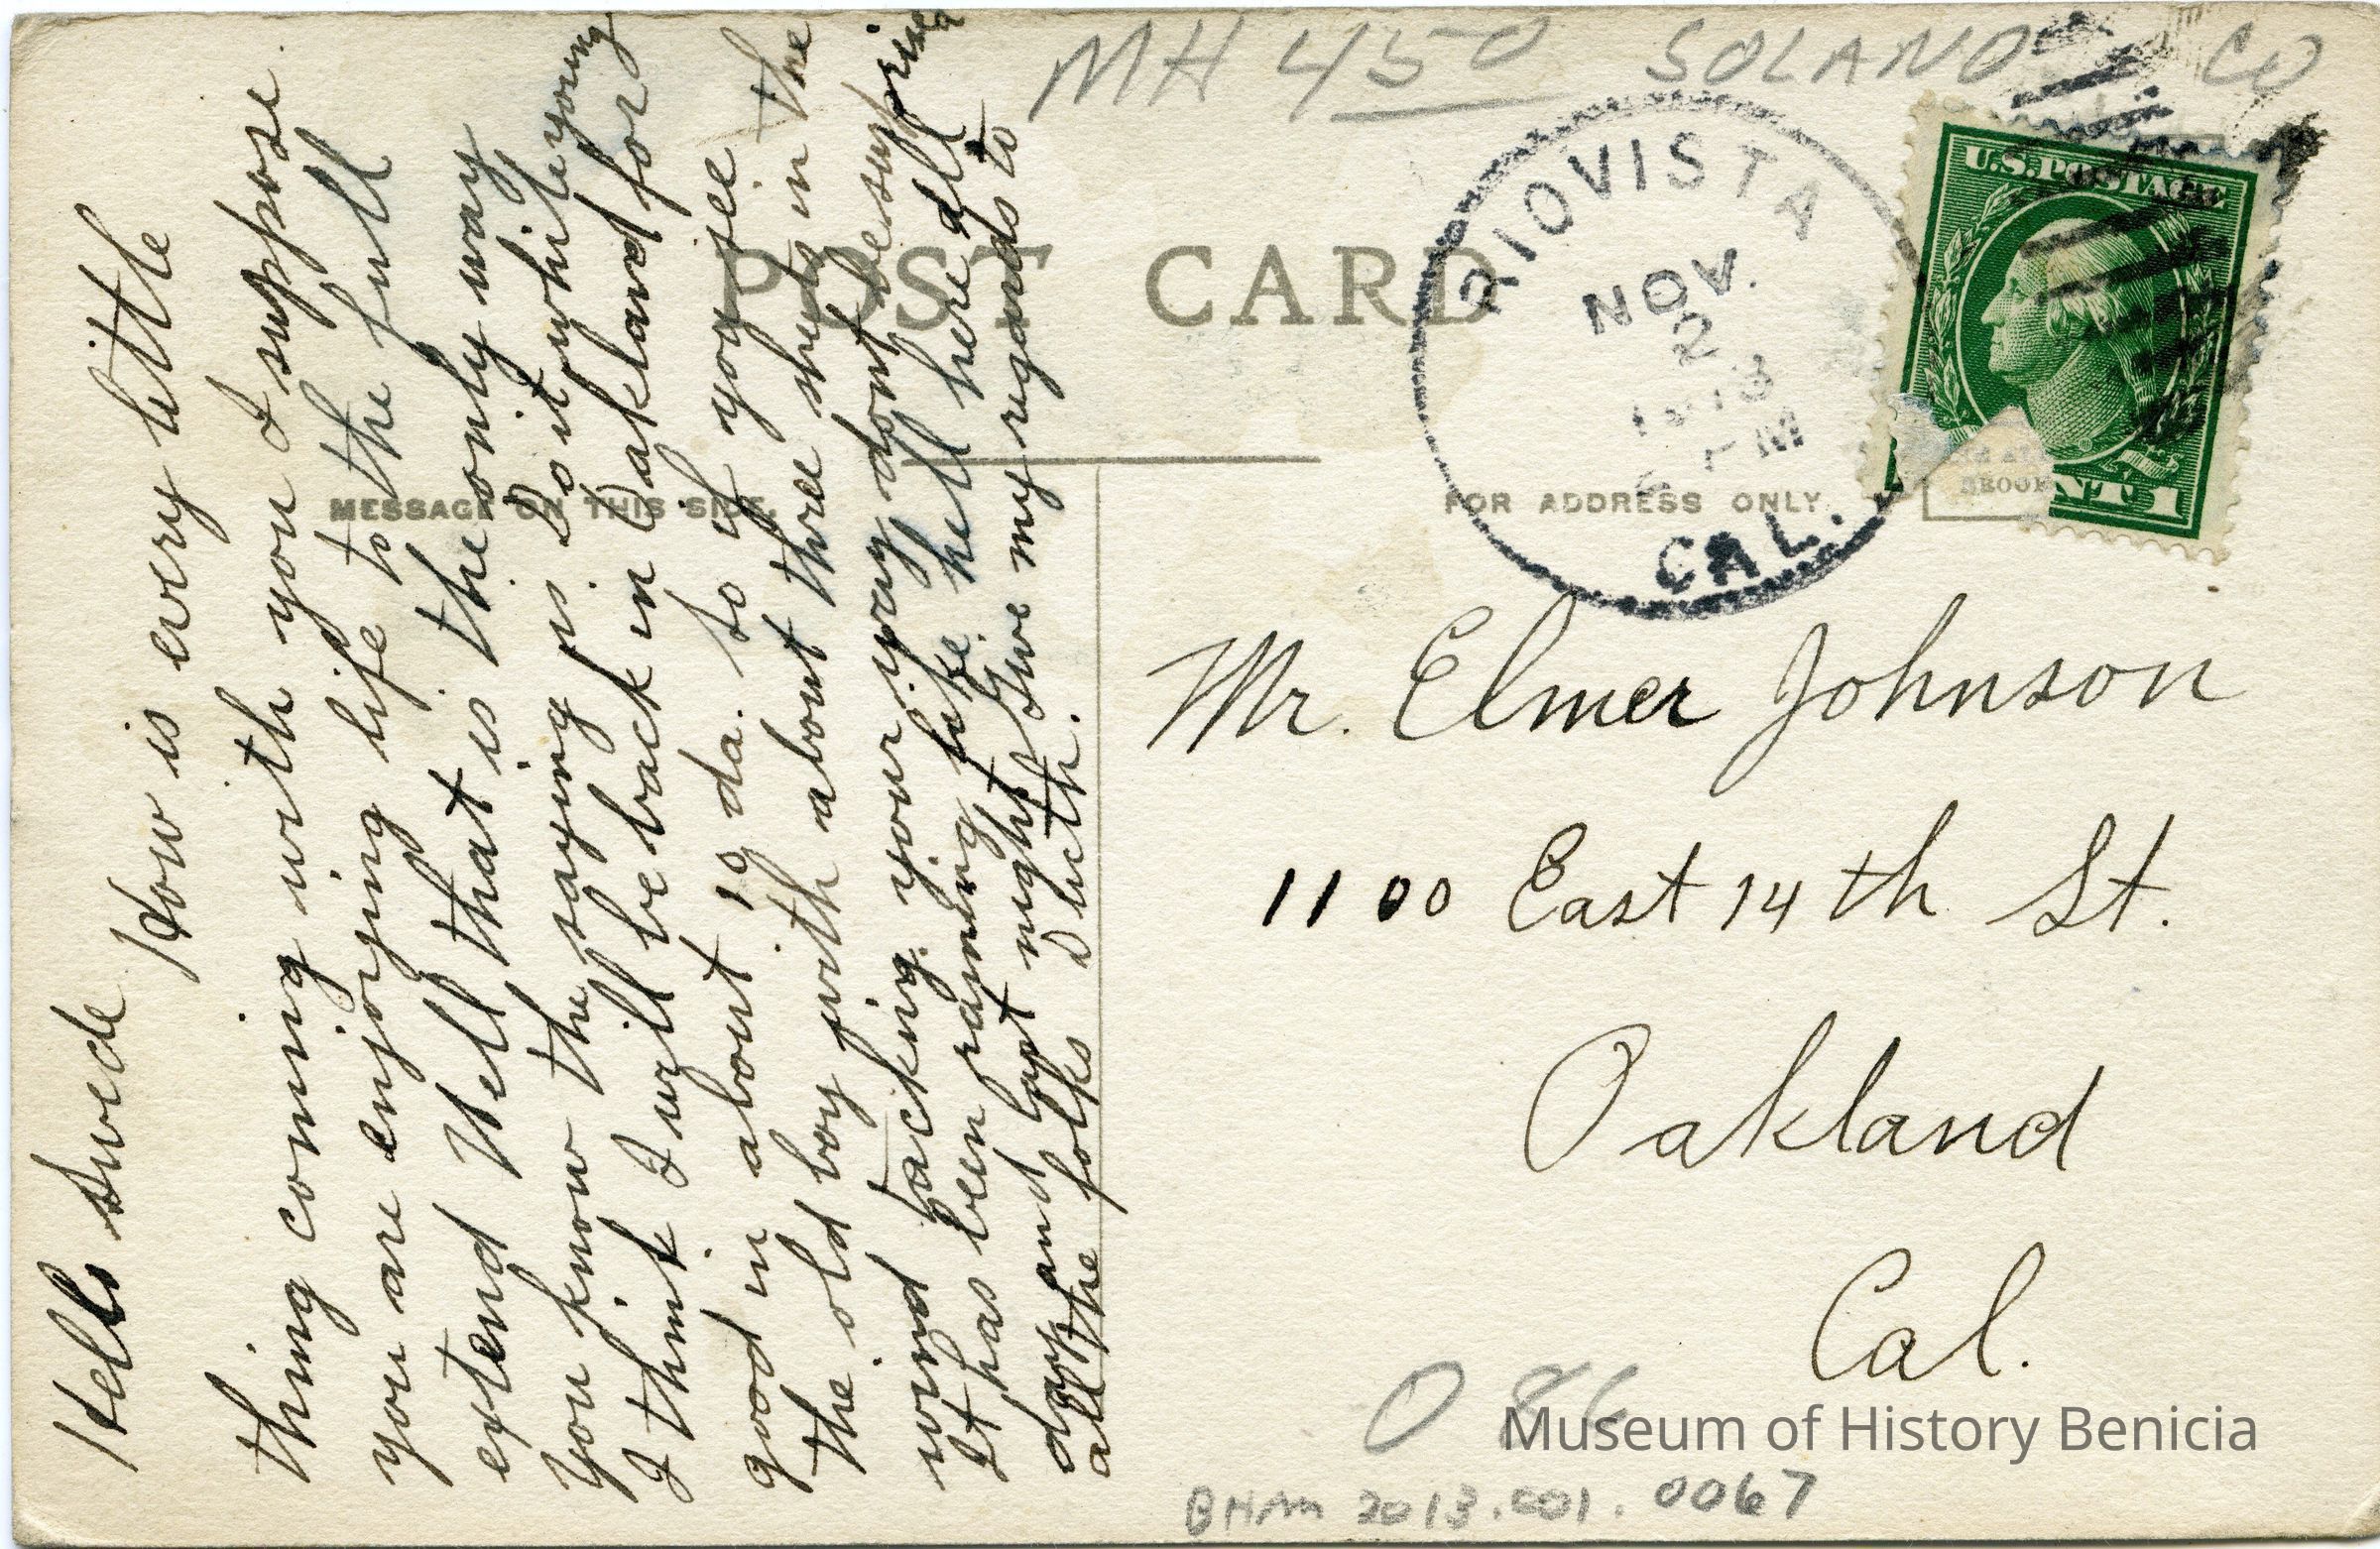 MH 450 SOLANO CO
POST CARD
RIOVISTA
NOV.
2
1913
PM
CAL.
U.S.POSTAGE
MESSAGE ON THIS SIDE.
FOR ADDRESS ONLY.
Hello Swede
How is every little
thing coming with you I suppose
you are enjoying life to the full
extend Well that is the only way
You know the saying is Do it while young
I think I will be back in Oakland for
good in about 10 da. So if you see the
the old boy with about three sheets in the
wind tacking your way dont be surprised
It has been raining like hell here all
day and last night Give my regards to
all the folks Dutch.
Mr. Elmer Johnson
1100 East 14th St.
Oakland
Cal.
O 86
Museum of History Benicia
BHM 2013.001.0067